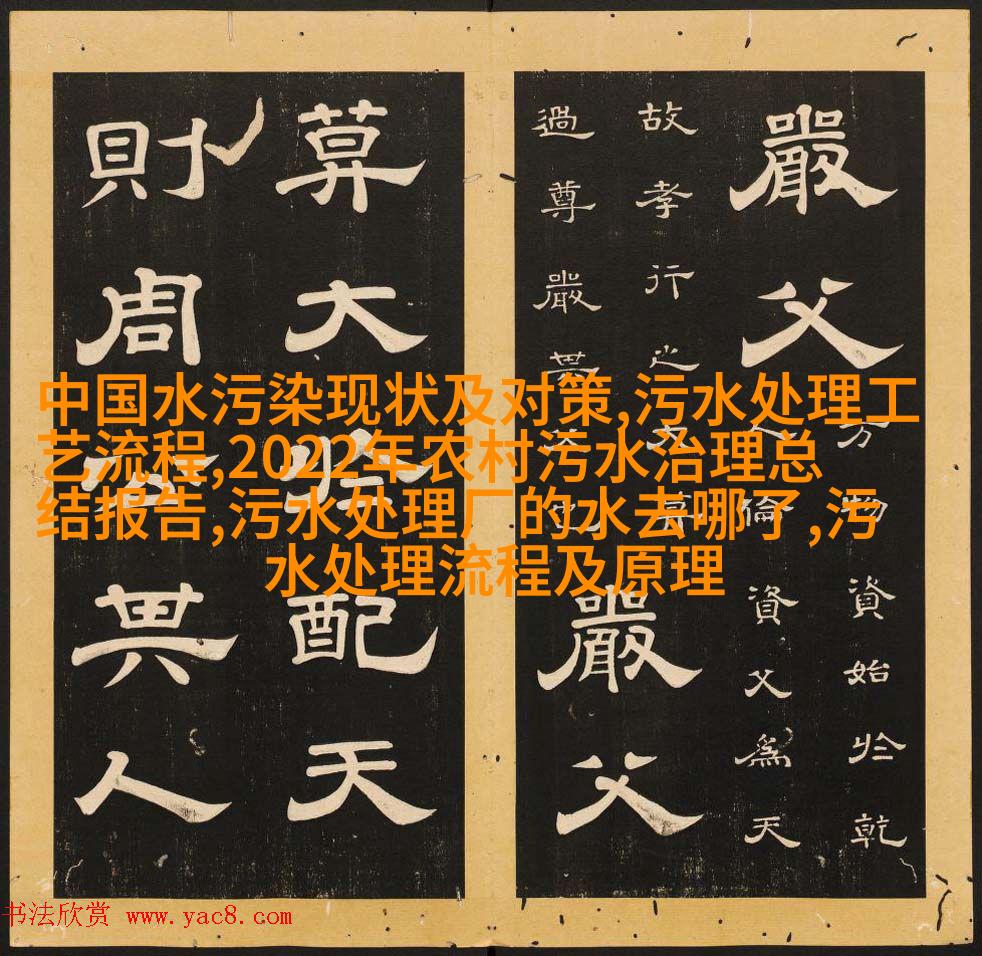 嚴父
万物資始於乾
人倫資父為天
故孝行之大莫
過尊嚴其父也
嚴父
莫大於配天
則周公其人
中国水污染现状及对策,污水处理工
艺流程,2022年农村污水治理总
结报告,污水处理厂的水去哪了,污
水处理流程及原理
书法欣赏 www.yac8.com